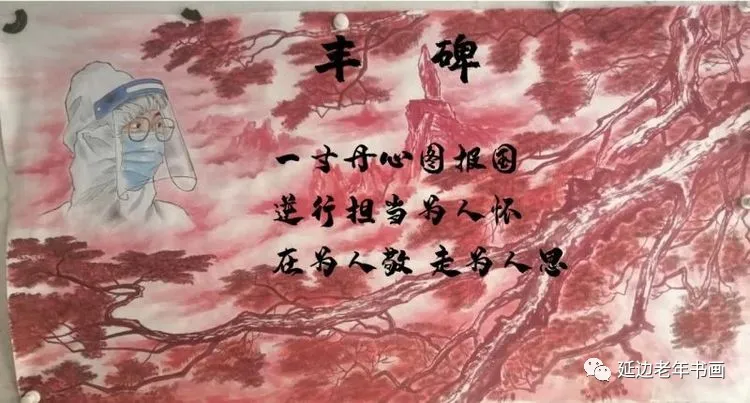 丰 碑
一寸丹心图报国
逆行担当为人怀
在为人敬 走为人思
延边老年书画